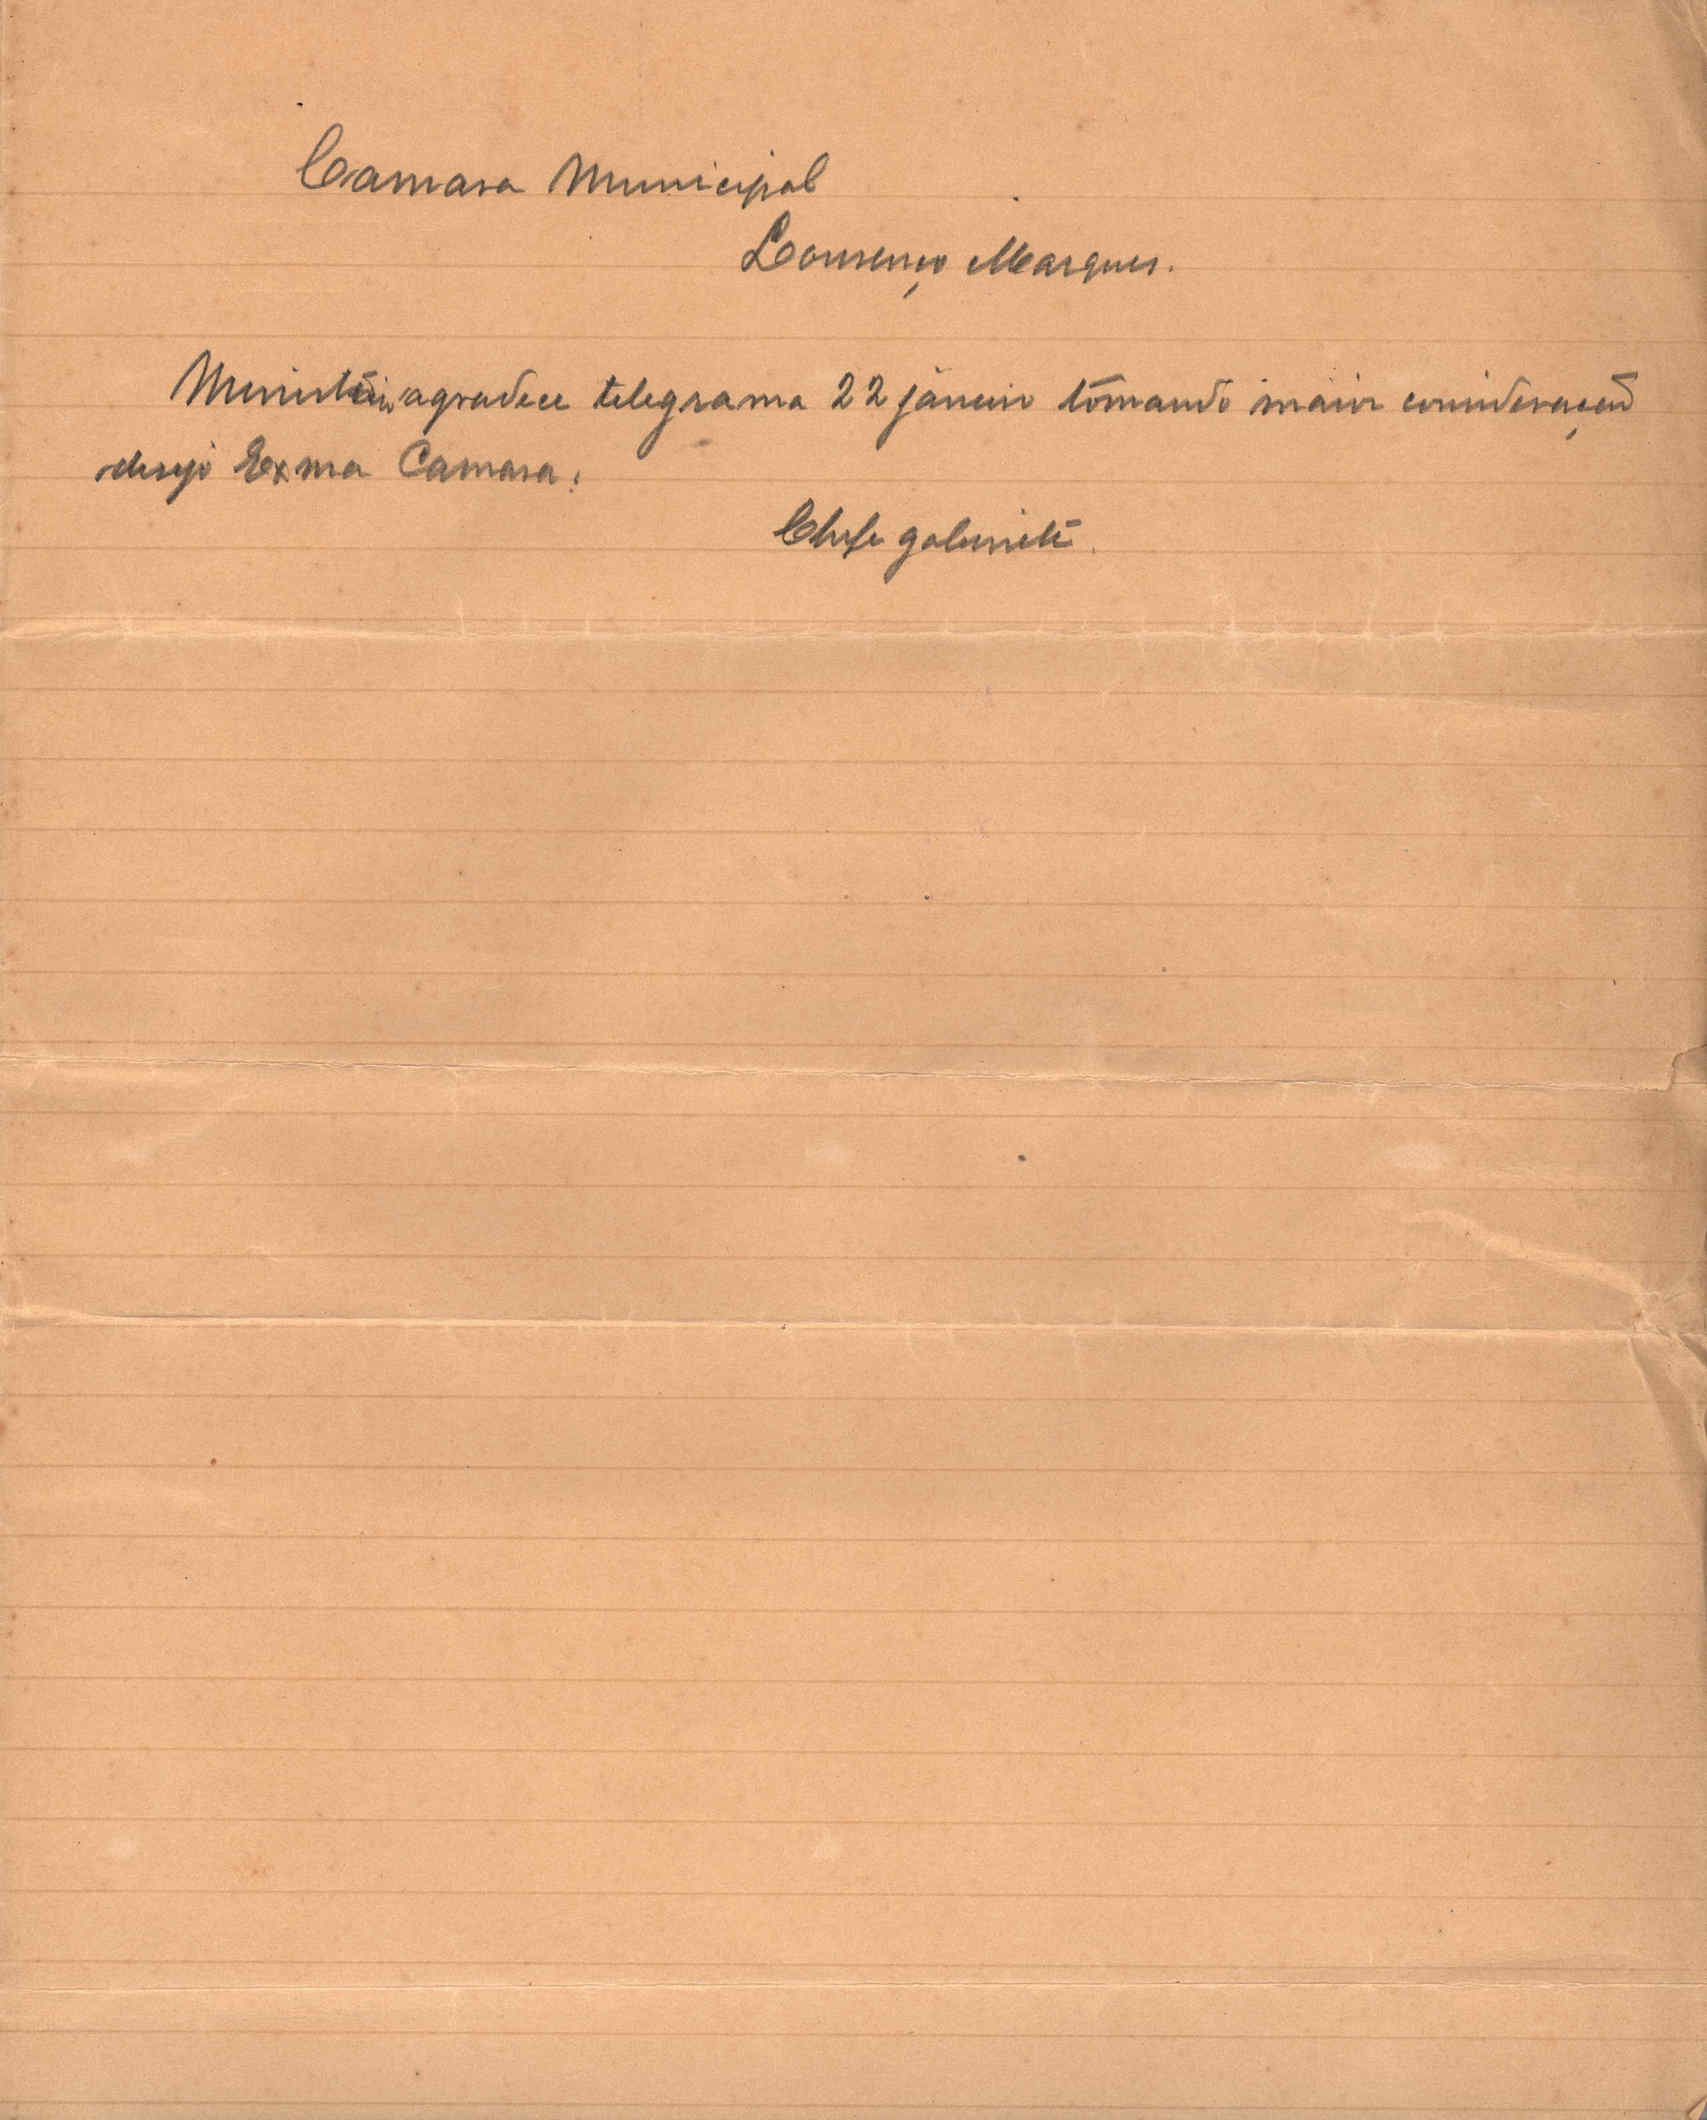 Camara Municipal
Lourenço Marques.
Ministério agradece telegrama 22 janeiro tomando maior consideração
desejo Exma Camara.
Chefe gabinete.